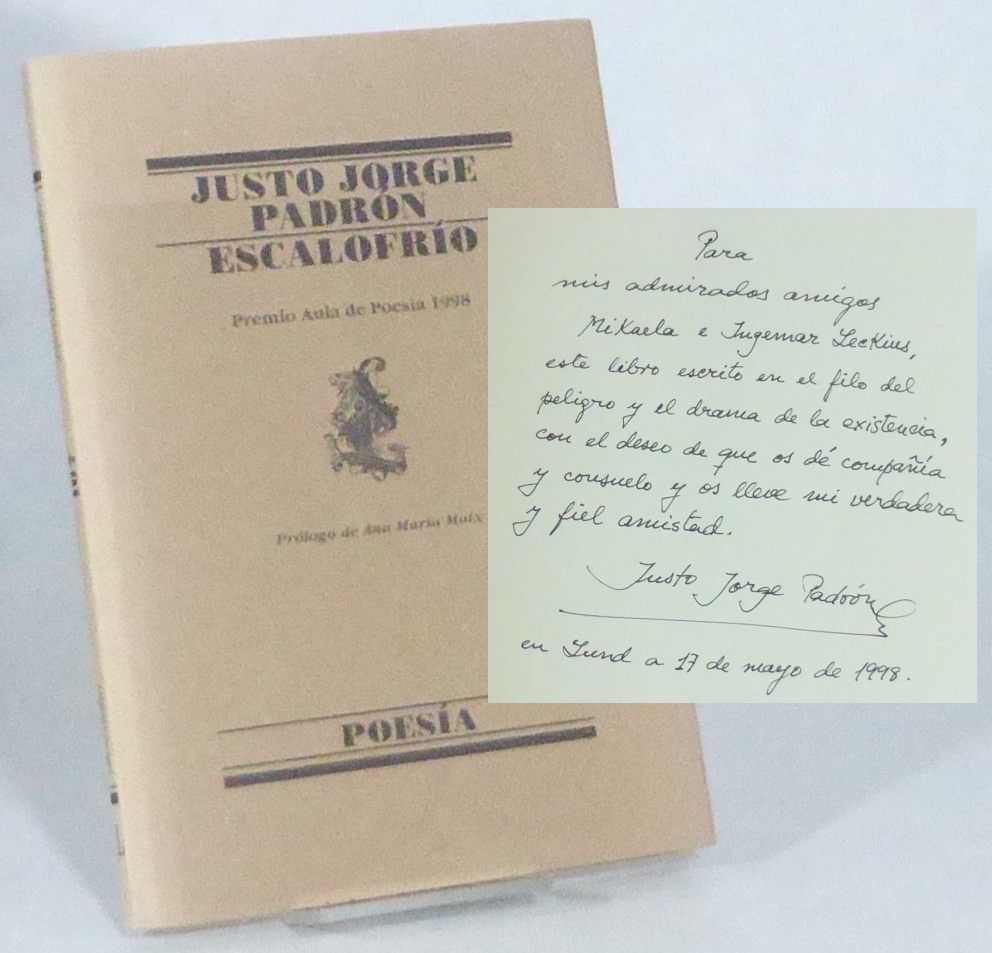 JUSTO JORGE
PADRÓN
ESCALOFRÍO
Premio Aula de Poesía 1998
Prólogo de Ana María Moix
POESÍA
Para
mis admirados amigos
Mikaela e Ingemar Leckius,
este libro escrito en el filo del
peligro y el drama de la existencia,
con el deseo de que os dé compañía
y consuelo y os lleve mi verdadera
y fiel amistad.
Justo Jorge Padrón
en Lund a 17 de mayo de 1998.